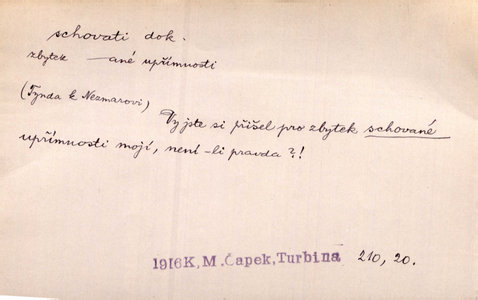 schovati dok.
zbytek —ané upřímnosti
(Tynda k Nezmarovi)
Vy jste si přišel pro zbytek schované
upřímnosti mojí, není-li pravda?!
1916K,M.Čapek,Turbina 210, 20.